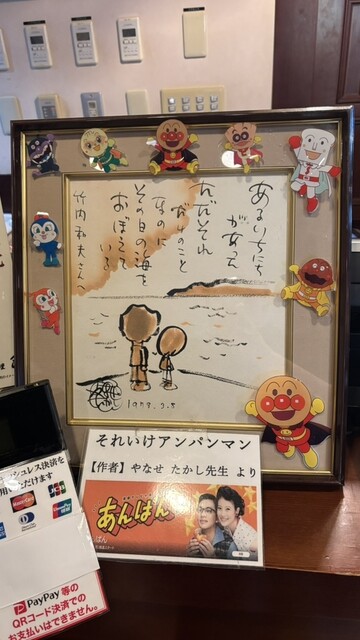 あるいちにち
がある
ただそれ
だけのこと
なのに
その日の海を
おぼえて
いる
竹内和夫さんへ
1973.9.5
それいけアンパンマン
【作者】やなせ たかし先生 より
あんぱん
ッシュレス決済を
用いただけます
MasterCard
JCB
Diners Club
PayPay
PayPay 等の
QRコード決済での
お支払いはできません。